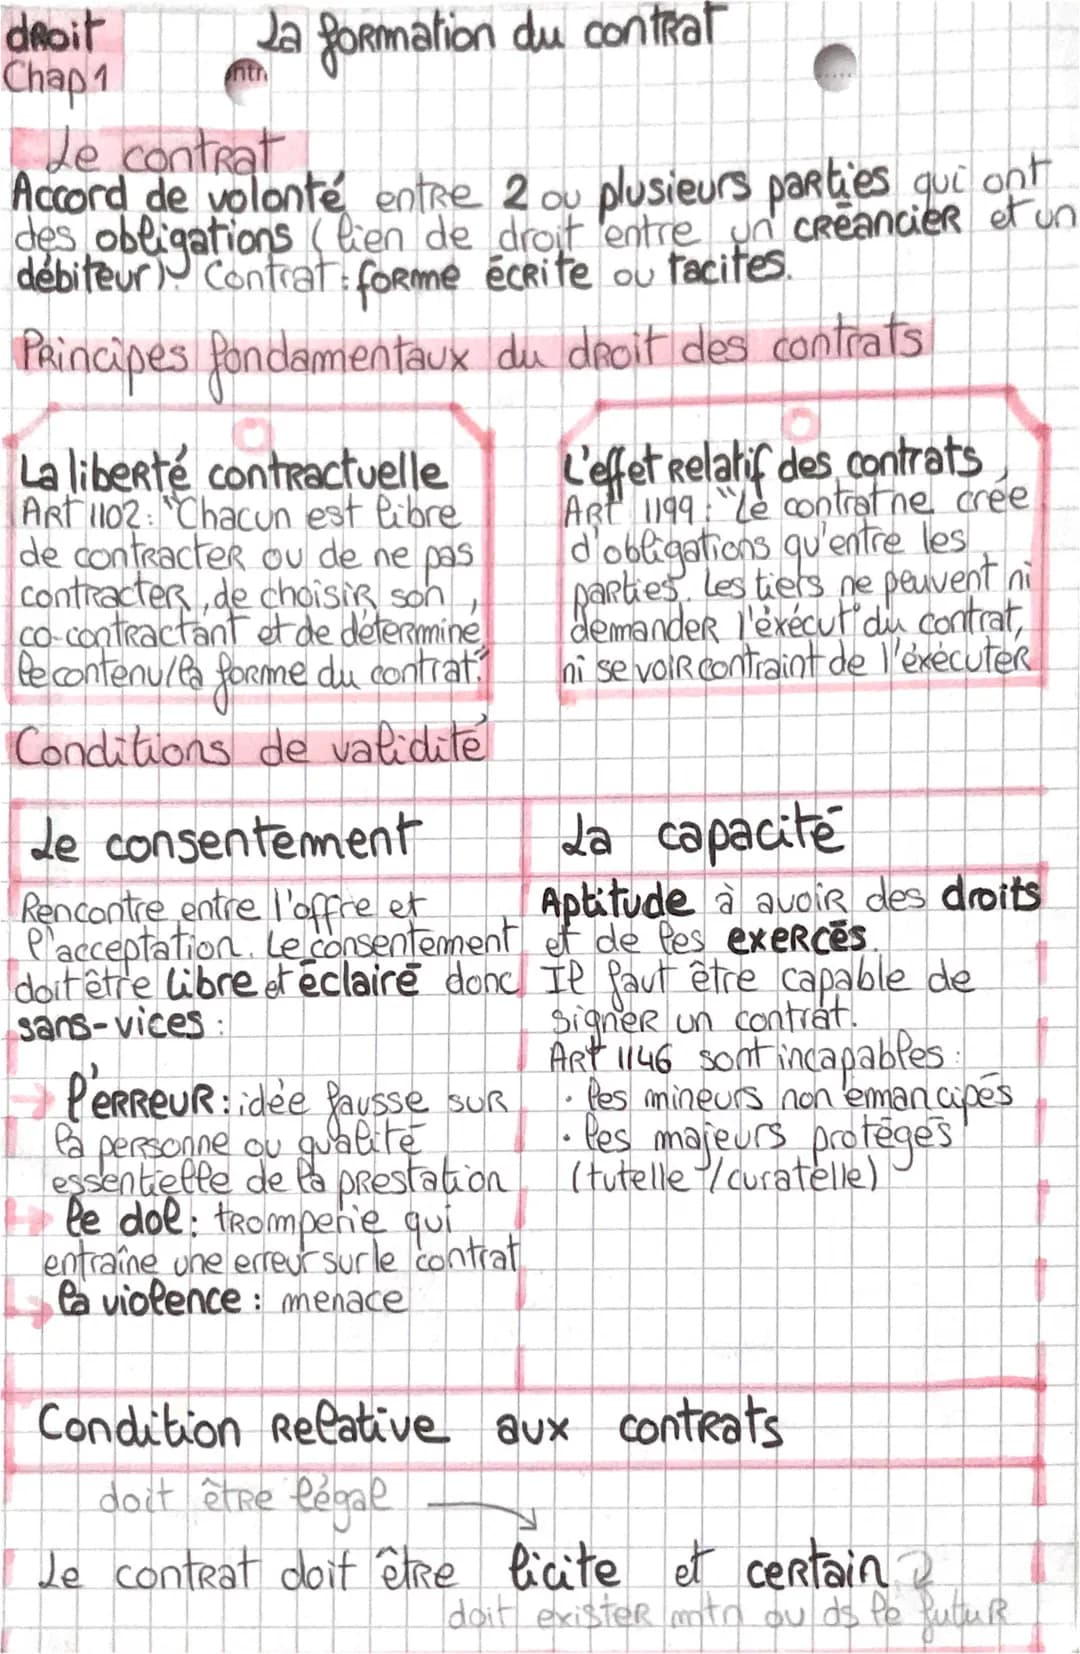 droit
La formation du contrat
Chap 1
Le contrat
Accord de volonté entre 2 ou plusieurs parties qui ont
des obligations (lien de droit entre un créancier et un
débiteur). Contrat : forme écrite ou tacites.
Principes fondamentaux du droit des contrats
La liberté contractuelle
Art 1102 : "Chacun est libre
de contracter ou de ne pas
contracter, de choisir son
co-contractant et de déterminé
le contenu/la forme du contrat."
L'effet relatif des contrats
Art 1199 : "Le contrat ne crée
d'obligations qu'entre les
parties. Les tiers ne peuvent ni
demander l'éxécut° du contrat,
ni se voir contraint de l'éxécuter
Conditions de validité
Le consentement
Rencontre entre l'offre et
l'acceptation. Le consentement
doit être libre et éclairé donc
sans-vices :
→ l'erreur : idée fausse sur
la personne ou qualité
essentielle de la prestation
→ le dol : tromperie qui
entraîne une erreur sur le contrat
→ la violence : menace
La capacité
Aptitude à avoir des droits
et de les exercés.
Il faut être capable de
signer un contrat.
Art 1146 sont incapables :
• les mineurs non émancipés
• les majeurs protégés
(tutelle / curatelle)
Condition relative aux contrats
doit être légal
Le contrat doit être licite et certain
doit exister mtn ou ds le futur